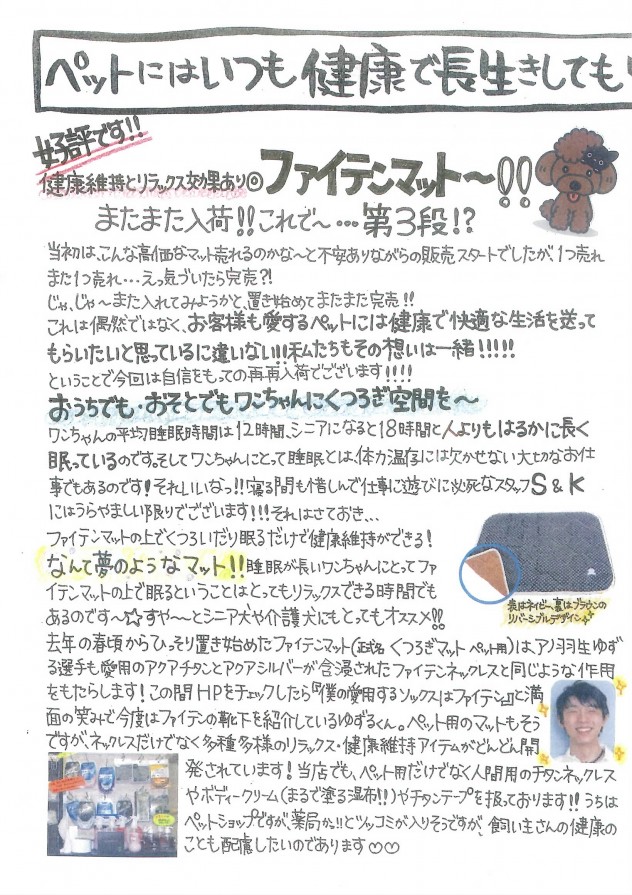 ペットにはいつも健康で長生きしてもら
好評です!!
健康維持とリラックス効果あり◎ファイテンマット〜!!
またまた入荷!!これで〜…第3段!?
当初は、こんな高価なマット売れるのかな〜と不安ありながらの販売スタートでしたが、1つ売れ
また1つ売れ…えっ気づいたら完売?!
じゃ、じゃ〜また入れてみようかと、置き始めてまたまた完売!!
これは偶然ではなく、お客様も愛するペットには健康で快適な生活を送って
もらいたいと思っているに違いない!!私たちもその想いは一緒!!!!!
ということで今回は自信をもっての再再入荷でございます!!!!
おうちでも・おそとでもワンちゃんにくつろぎ空間を〜
ワンちゃんの平均睡眠時間は12時間、シニアになると18時間と人よりもはるかに長く
眠っているのです。そしてワンちゃんにとって睡眠とは、体力温存には欠かせない大切なお仕
事でもあるのです!それいいなっ!!寝る間も惜しんで仕事に遊びに必死なスタッフS&K
にはうらやましい限りでございます!!!それはさておき…
ファイテンマットの上でくつろいだり眠るだけで健康維持ができる!
なんて夢のようなマット!!睡眠が長いワンちゃんにとってファ
イテンマットの上で眠るということはとってもリラックスできる時間でも
あるのです〜☆すや〜とシニア犬や介護犬にもとってもオススメ!!
表はネイビー、裏はブラウンの
リバーシブルデザイン
去年の春頃からひっそり置き始めたファイテンマット(正式名 くつろぎマット ペット用)は、アノ羽生ゆず
る選手も愛用のアクアチタンとアクアシルバーが含浸されたファイテンネックレスと同じような作用
をもたらします!この間HPをチェックしたら『僕の愛用するソックスはファイテン』と満
面の笑みで今度はファイテンの靴下を紹介しているゆずるくん。ペット用のマットもそう
ですが、ネックレスだけでなく多種多様のリラックス・健康維持アイテムがどんどん開
発されています!当店でも、ペット用だけでなく人間用のチタンネックレス
やボディークリーム(まるで塗る湿布!!)やチタンテープを扱っております!!うちは
ペットショップですが、薬局かっ!!とツッコミが入りそうですが、飼い主さんの健康の
ことも配慮したいのであります♡♡